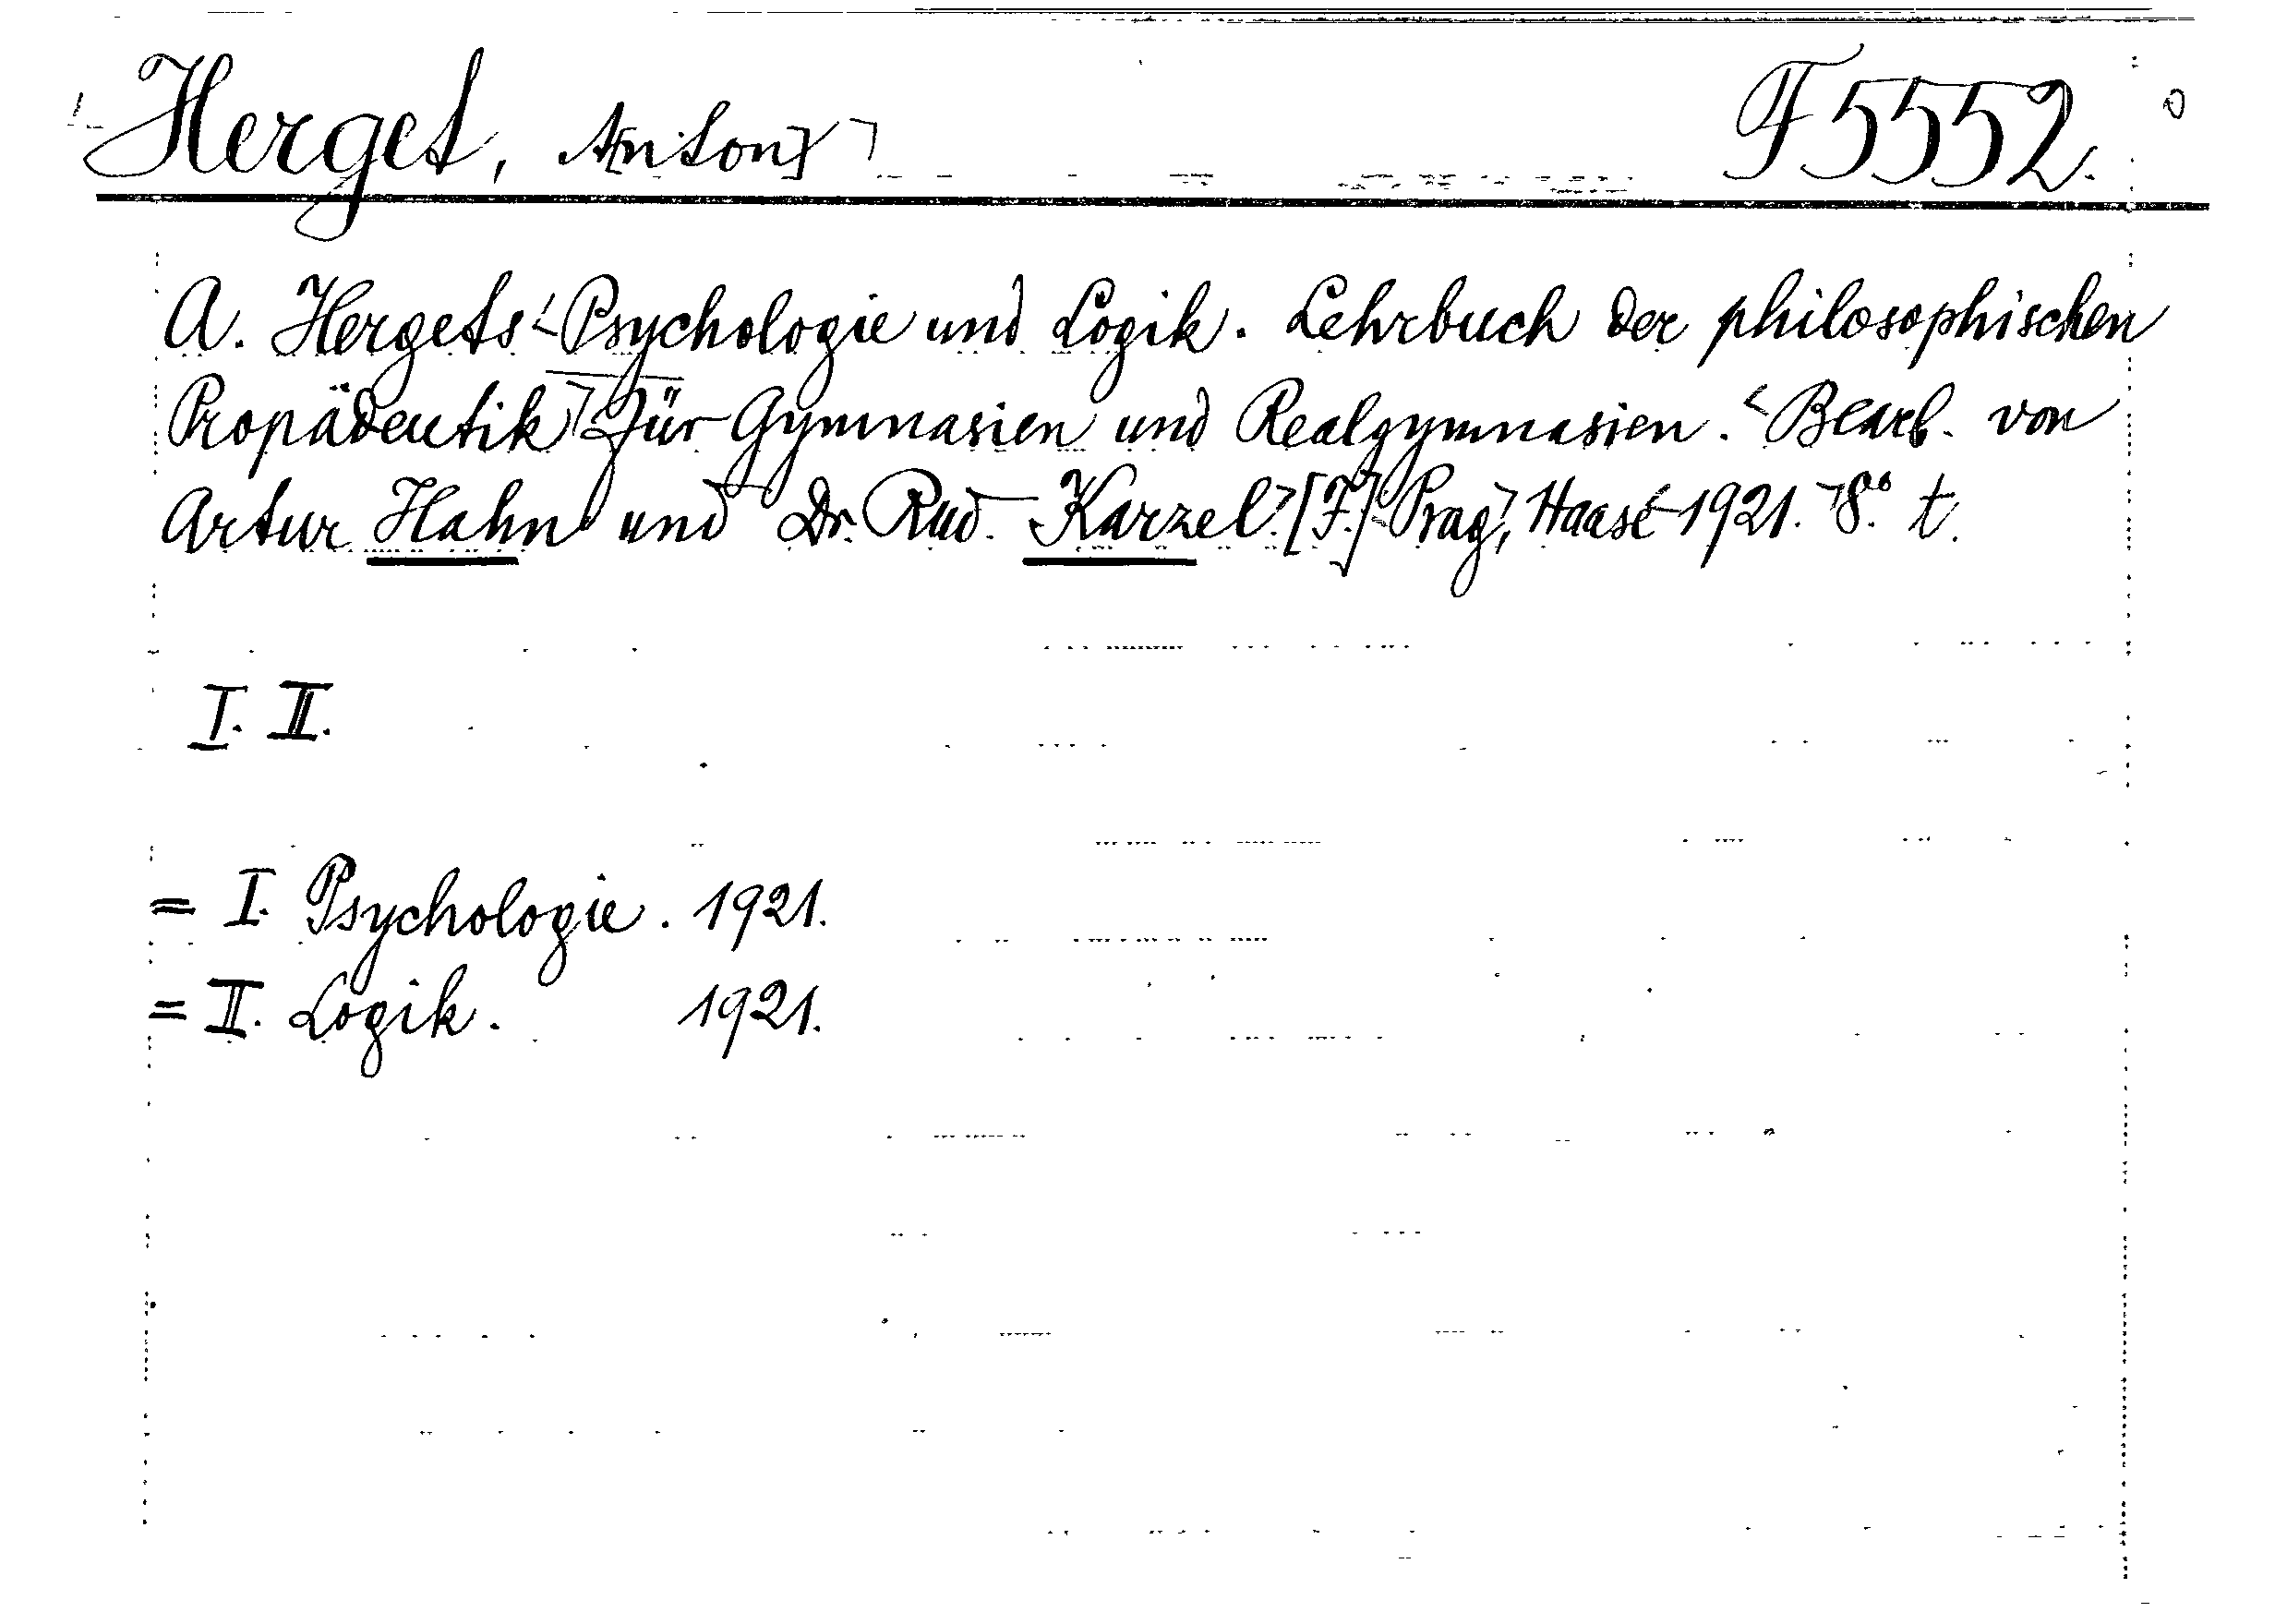 Herget, A[nton] F 5552.
A. Hergets Psychologie und Logik. Lehrbuch der philosophischen
Propädeutik für Gymnasien und Realgymnasien. Bearb. von
Artur Hahn und Dr. Rud. Karzel. [F.] Prag, Haase 1921. 8° t.
I. II.
= I. Psychologie. 1921.
= II. Logik. 1921.